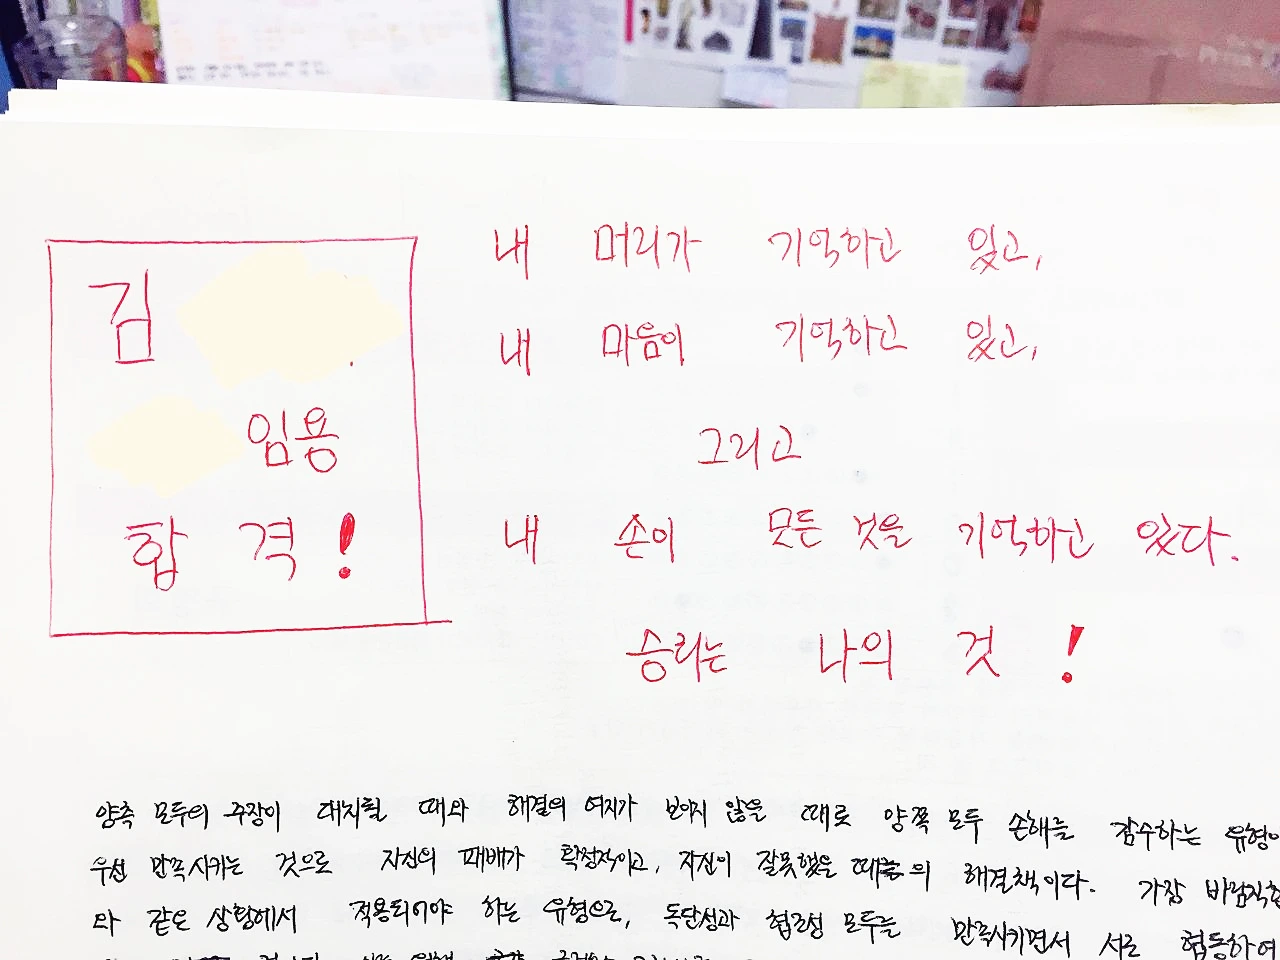 김
임용
합격!
내 머리가 기억하고 있고,
내 마음이 기억하고 있고,
그리고
내 손이 모든 것을 기억하고 있다.
승리는 나의 것!
양측 모두의 주장이 대치될 때와 해결의 여지가 보이지 않을 때로 양쪽 모두 손해를 감수하는 유형이
우선 만족시키는 것으로 자신의 패배가 확정적이고, 자신이 잘못했을 때의 해결책이다. 가장 바람직한
타 같은 상황에서 적용되어야 하는 유형으로, 독단성과 협조성 모두를 만족시키면서 서로 협동하여